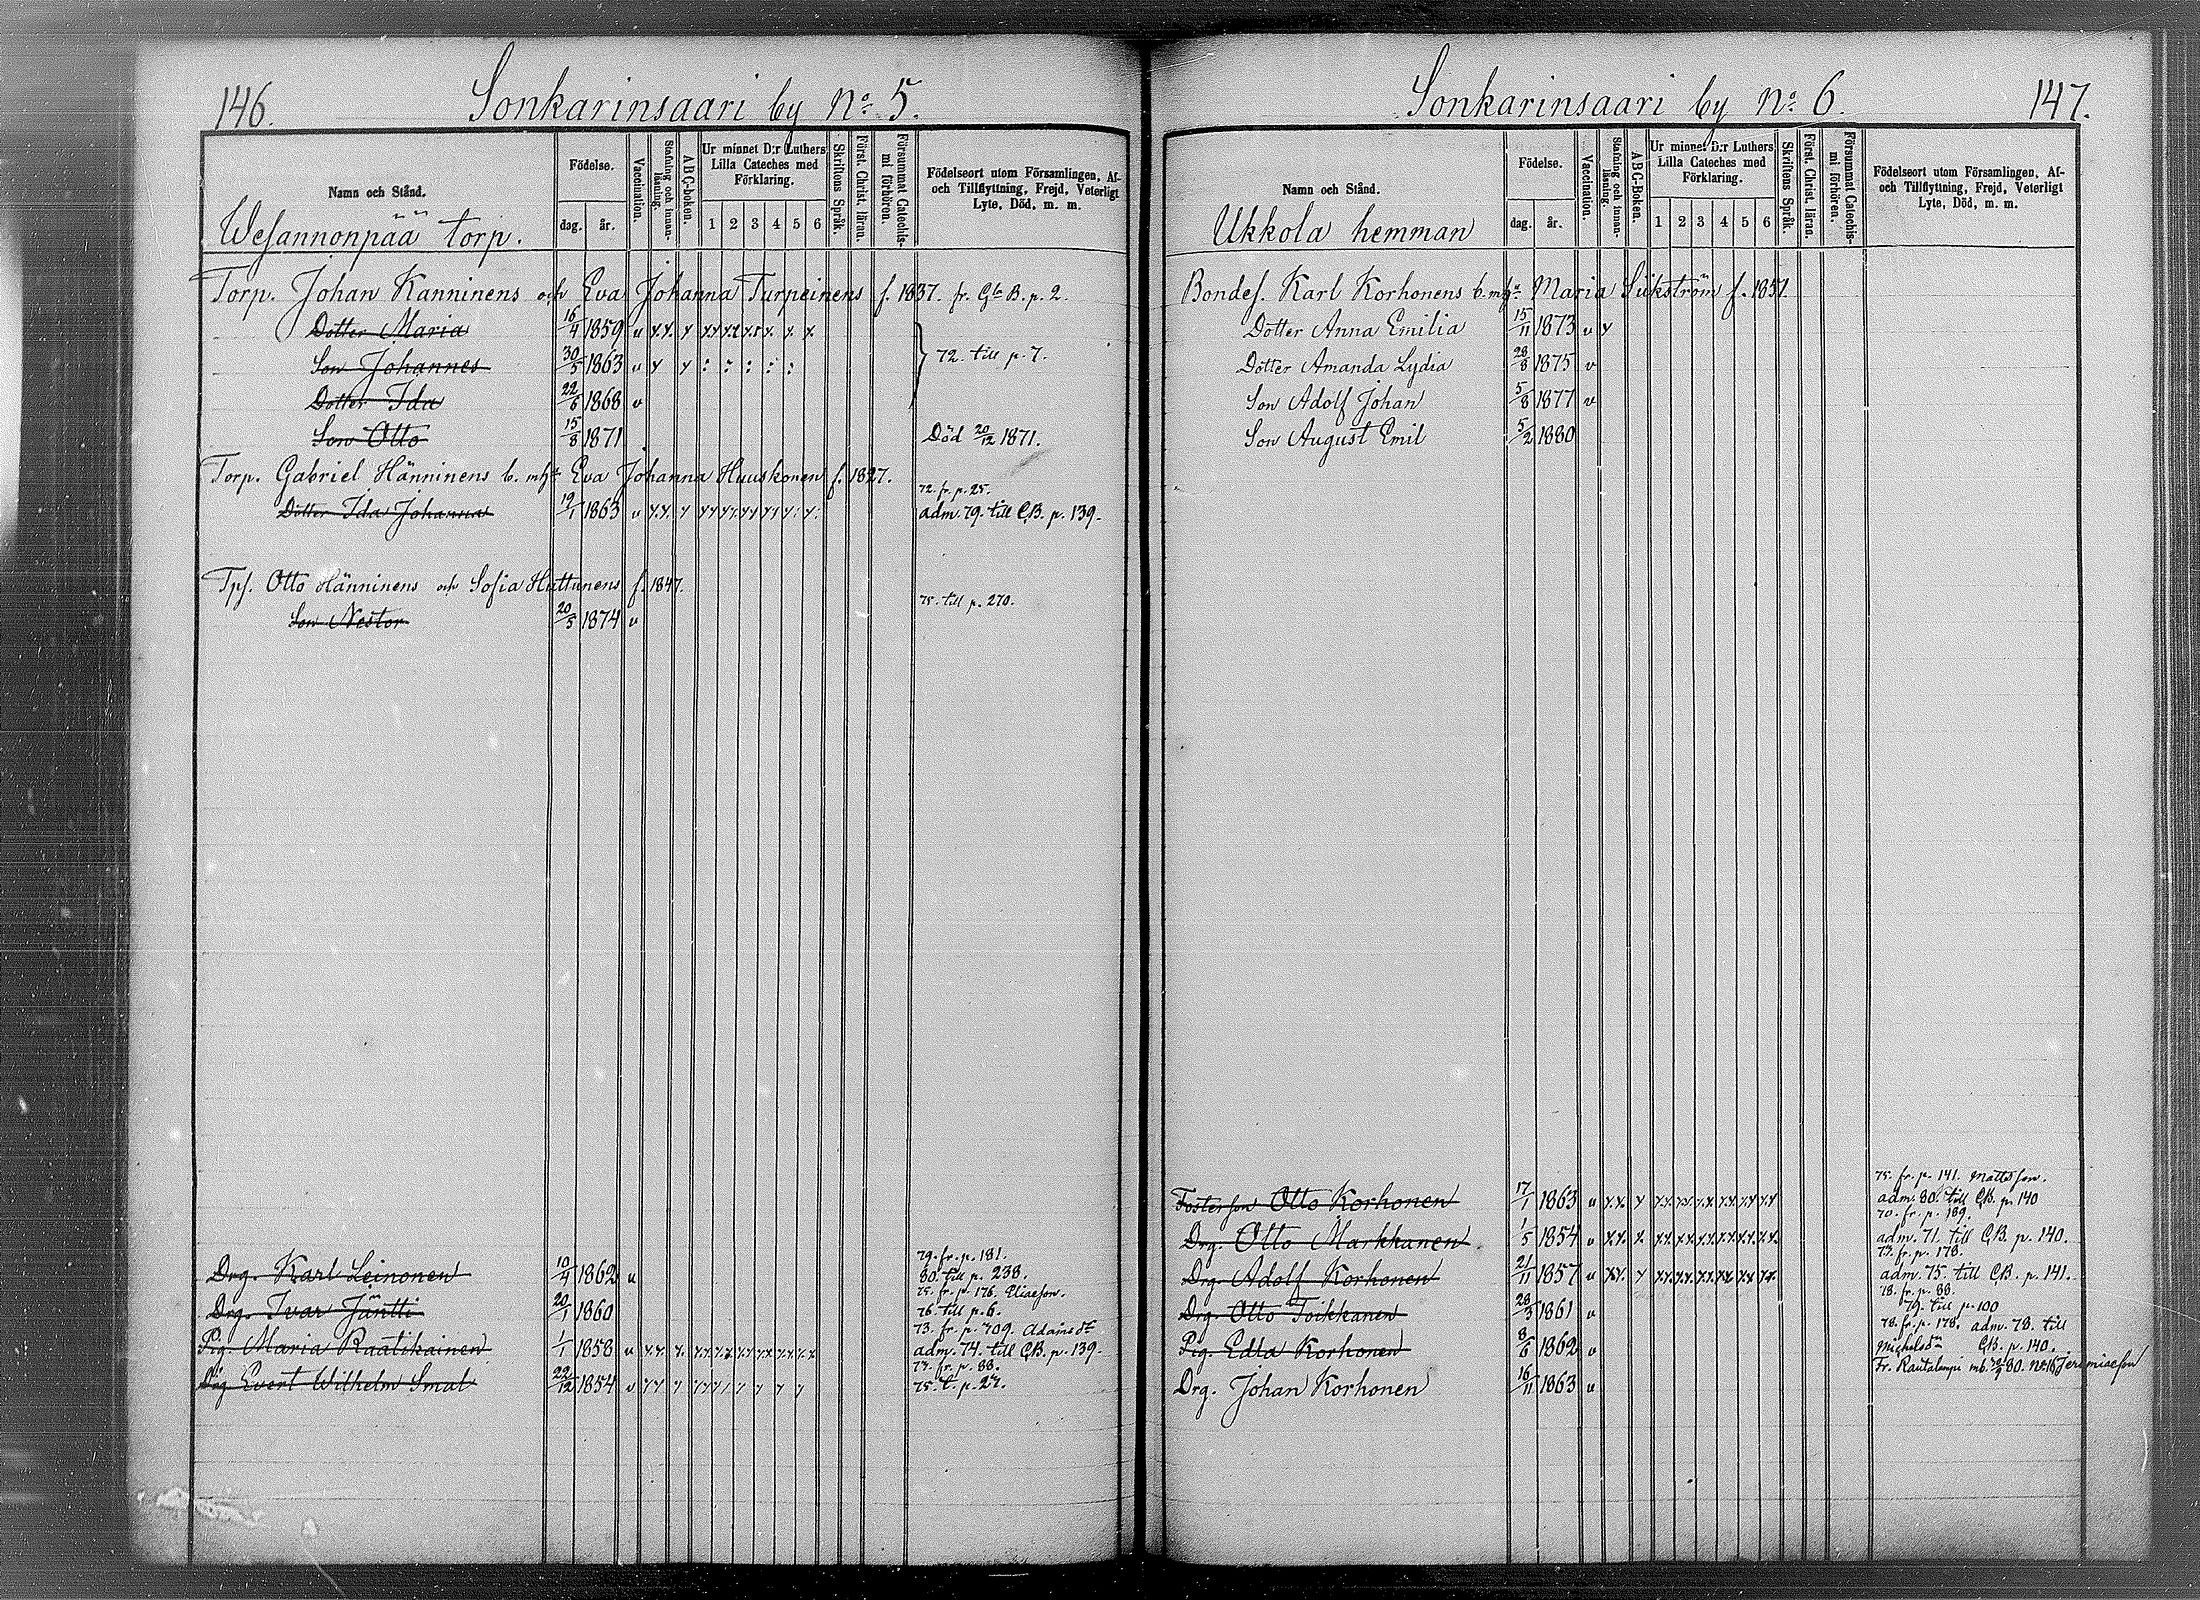 146.
Sonkarinsaari by No 5.
Namn och Stånd.
Födelse.
dag. år.
Vaccination.
Stafning och innan-läsning.
A B C-boken.
Ur minnet D:r Luthers Lilla Cateches med Förklaring.
1 2 3 4 5 6
Skriftens Språk.
Först. Christ. läran.
Försummat Catechis-mi förhören.
Födelseort utom Församlingen, Af- och Tillflyttning, Frejd, Veterligt Lyte, Död, m. m.
Wesannonpää torp.
Torp. Johan Kanninens och Eva Johanna Turpeinens f. 1837. fr. Gla B. p. 2.
Dotter Maria 16/4 1859 v
Son Johannes 30/5 1863 v 72. till p. 7.
Dotter Ida 22/6 1868 v
Son Otto 15/8 1871 Död 20/12 1871.
Torp. Gabriel Hänninens b. m. hu Eva Johanna Huuskonen f. 1827.
72. fr. p. 25.
Dotter Ida Johanna 19/1 1863 v adm. 79. till C.B. p. 139.
Tps. Otto Hänninens och Sofia Huttunens f. 1847.
75. till p. 270.
Son Nestor 20/5 1874 v
79. fr. p. 181.
Drg. Karl Leinonen 10/4 1862 v 80. till p. 238.
75. fr. p. 176. Eliaeson.
Drg. Ivar Jäntti 20/1 1860 76. till p. 6.
73. fr. p. 709. Adamsdr
Pig. Maria Raatikainen 1/1 1858 v adm. 74. till C.B. p. 139.
73. fr. p. 88.
Drg. Evert Wilhelm Smal 22/12 1854 v 75. t. p. 27.
Sonkarinsaari by No 6.
147.
Namn och Stånd.
Födelse.
dag. år.
Vaccination.
Stafning och innan-läsning.
A B C-boken.
Ur minnet D:r Luthers Lilla Cateches med Förklaring.
1 2 3 4 5 6
Skriftens Språk.
Först. Christ. läran.
Försummat Catechis-mi förhören.
Födelseort utom Församlingen, Af- och Tillflyttning, Frejd, Veterligt Lyte, Död, m. m.
Ukkola hemman
Bondes. Karl Korhonens b. m. hu Maria Sükström f. 1851.
Dotter Anna Emilia 15/11 1873 v
Dotter Amanda Lydia 28/8 1875 v
Son Adolf Johan 5/8 1877 v
Son August Emil 5/2 1880
75. fr. p. 141. Mattsson.
Fosterson Otto Korhonen 17/1 1863 v adm. 80. till C.B. p. 140
70. fr. p. 189.
Drg. Otto Markkanen 1/5 1854 v adm. 71. till C.B. p. 140.
73. fr. p. 178.
Drg. Adolf Korhonen 21/11 1857 v adm. 75. till C.B. p. 141.
78. fr. p. 88.
Drg. Otto Toikkanen 28/3 1861 v 79. till p. 100
78. fr. p. 178. adm. 78. till
Pig. Edla Korhonen 8/6 1862 v Michelsdr C.B. p. 140.
Fr. Rautalampi mb. 80. No 16. Jeremiaeson
Drg. Johan Korhonen 16/11 1863 v